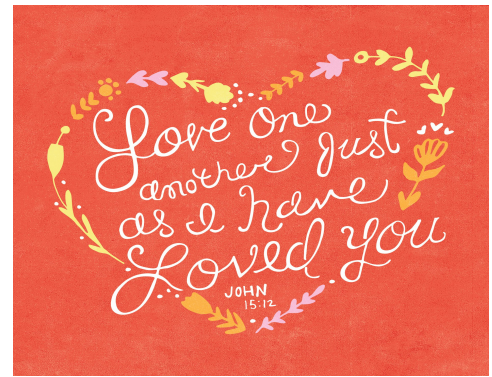 Love one
another just
as I have
Loved you
JOHN
15:12